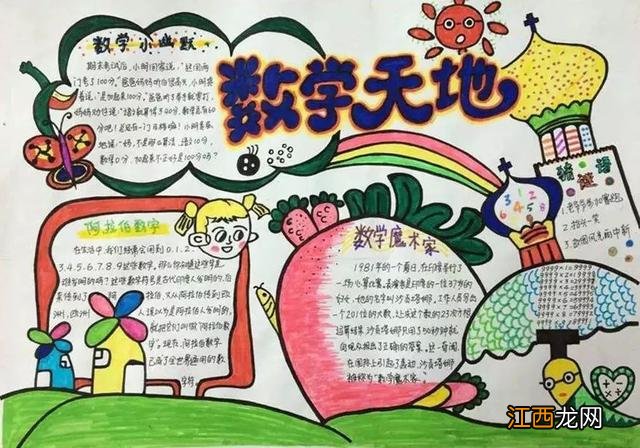 数学天地
数学小幽默
期末考试后，小明回家说："这回两
门考了100分。"爸爸妈妈听后很高兴，小明接
着说："是加起来100分。"爸爸听了举手就要打，
地说："妈，不是那么算法，语文10分，
数学0分，加起来不正好是100分吗？
阿拉伯数字
在生活中，我们经常会用到0.1.2.
3.4.5.6.7.8.9这些数字。那么你知道这些数字是
谁发明的吗？这些数字符号是古代印度人发明的，后
来传到了阿
拉伯，又从阿拉伯传到欧
洲，欧洲
人误以为是阿拉伯人发明的，
就把它们叫做"阿拉伯数
字"。现在，阿拉伯数字
已成了全世界通用的数
字符号
数学魔术家
1981年的一个夏日，在印度举行了
一场心算比赛。表演者是印度的一位37岁的
妇女，她的名字叫沙贡塔娜。工作人员写出
一个201位的大数，让求这个数的23次方根
运算结果，沙贡塔娜只用了50秒钟就
向观众报出了正确的答案。这一奇闻，
在国际上引起了轰动，沙贡塔娜
被称为"数学魔术家"。
猜谜语
2.
3.
江西龙网